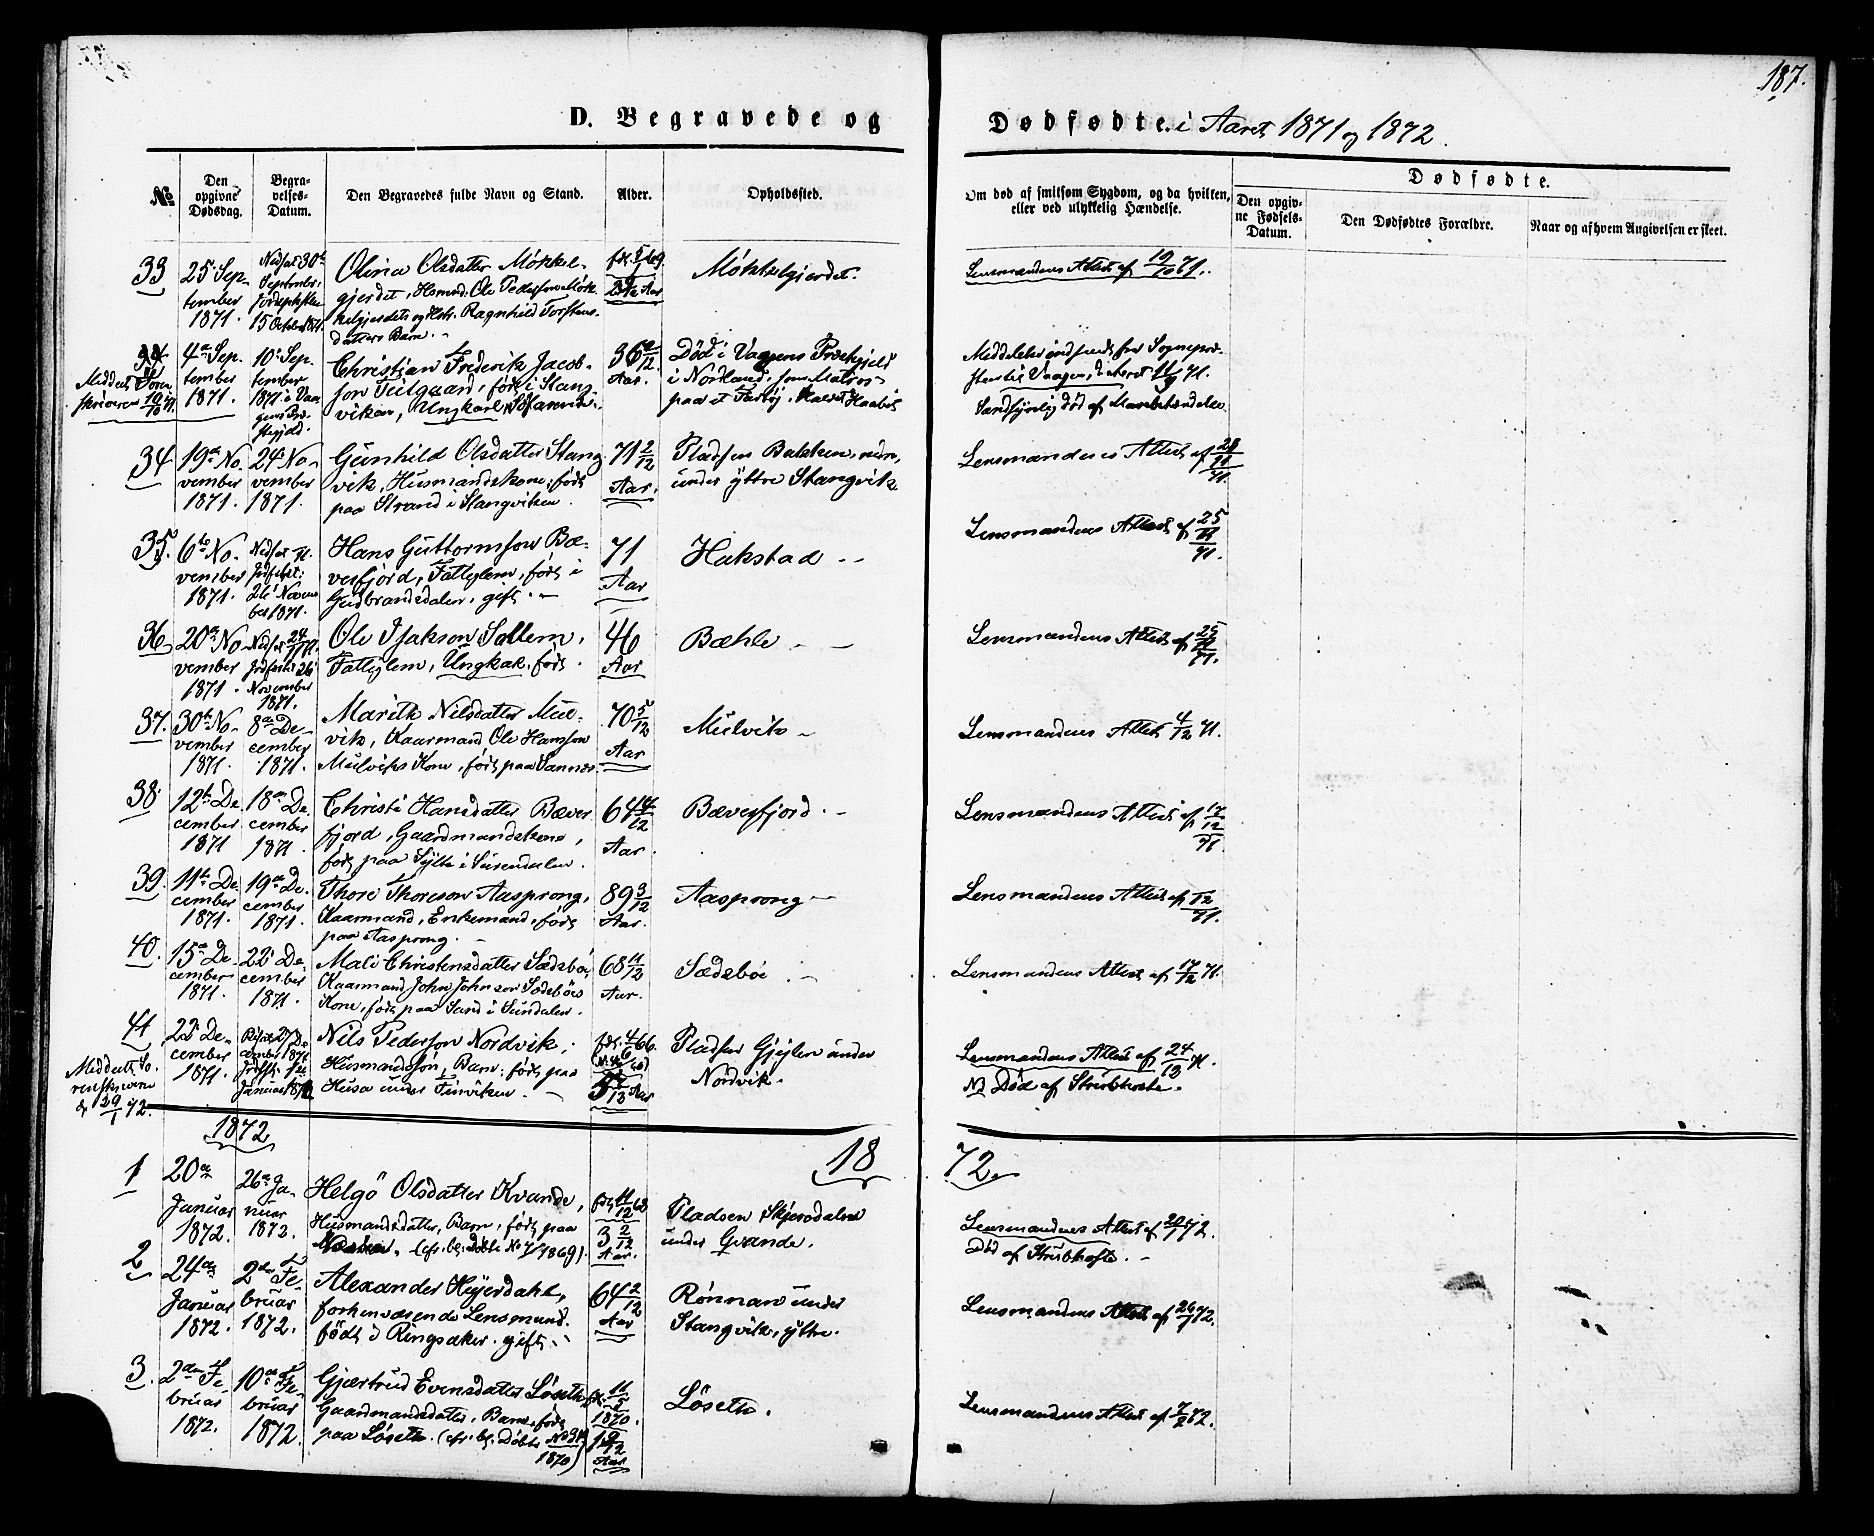 187.
D. Begravede og Dødfødte i Aaret 1871 og 1872.
No
Den opgivne Dødsdag.
Begravelses-Datum.
Den Begravedes fulde Navn og Stand.
Alder.
Opholdssted.
Om død af smitsom Sygdom, og da hvilken, eller ved ulykkelig Hændelse.
Dødfødte.
Den opgivne Fødsels-Datum.
Den Dødfødtes Forældre.
Naar og af hvem Angivelsen er skeet.
33
25 September 1871.
Nedsat 30te September
15 October 1871.
Olina Olsdatter Møkkel-
gjerdet, Husmd. Ole Pedersson Møk-
kelgjerdets og Hstr. Ragnhild Torstens-
datters Barn.
Møkkelgjerdet.
Lensmandens Attest af 19/10 71.
4de September 1871.
10de September 1871 i Vaagens Præstegjeld.
Christian Frederik Jacob-
son Teilgaard, født i Stang-
viken, Ungkarl,
36 Aar.
Død i Vaagens Præstegjeld
i Nordland, som Matros
paa et Fartøj, kaldet Haabet
Meddelelse indsendt fra Sognepræ-
sten til Vaagen, dateret 11/9 71.
Sandsynlig død af
34
19de November 1871.
24de November 1871.
Gunhild Olsdatter Stang-
vik, Husmandskone, født
paa Strand i Stangviken.
71 2/12 Aar.
Pladsen Bakken, nedre,
under yttre Stangvik.
Lensmandens Attest af 28/11 71.
35.
6te November 1871.
26de November 1871.
Hans Guttormsson Bæ-
verfjord, Fattiglem, født i
Gudbrandsdalen, gift.
71 Aar
Hakstad
Lensmandens Attest af 25/11 71.
36
20de November 1871.
Nedsat 24/11 71. Jordfæstet 26 November 1871.
Ole Isakson Sollem,
Fattiglem, Ungkarl, født.
46 Aar
Bæhle
Lensmandens Attest af 25/11 71.
37.
30te November 1871.
8de December 1871.
Marith Nilsdatter Mul-
vik, Kaarmand Ole Hansson
Mulviks Kone, født paa Sannes.
70 5/12 Aar
Mulvik
Lensmandens Attest 4/12 71.
38
12te December 1871
18de December 1871.
Christi Hansdatter Bæver-
fjord, Gaardmandskone,
født paa Sylte i Surendalen.
64 Aar.
Bæverfjord.
Lensmandens Attest af 17/12 71.
39.
11te December 1871.
19de December 1871.
Thore Thoreson Aasprong,
Kaarmand, Enkemand, født
paa Aasprong.
89 3/12 Aar.
Aasprong
Lensmandens Attest af 71.
40.
15de December 1871.
22de December 1871.
Mali Christensdatter Sædsbø,
Kaarmand John Johnson Sædsbøs
Kone, født paa Sand i Sundalen.
68 11/12 Aar.
Sædsbøe
Lensmandens Attest af 17/12 71.
41
Meddelt Sorenskriveren d. 29/1 72.
22de December 1871.
Nils Pederson Nordvik,
Husmandssøn, Barn, født paa
Husa under
fdt. 4/6 66.
Pladsen Gjejlen under
Nordvik.
Lensmandens Attest af 24/12 71.
NB Død af Strubhoste.
1872
1872.
1
20de Januar 1872.
26de Januar 1872.
Helgø Olsdatter Kvande,
Husmandsdatter, Barn, født paa
(cfr. bl. Døbte No 7/1869).
3 2/12 Aar.
Pladsen Skjerdalen
under Qvande.
Lensmandens Attest af 72.
Død af Strubhoste.
2
24de Januar 1872.
2den Februar 1872.
Alexander Heyerdahl,
forhenværende Lensmand.
født i Ringsaker. gift.
64 2/12 Aar
Rønnan under
Stangvik, ytre.
Lensmandens Attest af 26/1 72.
3.
2den Februar 1872.
10de Februar 1872.
Gjertrud Evensdatter Løseth,
Gaardmandsdatter, Barn, født
paa Løseth. (cfr. bl. Døbte No 34 1870)
fdt. 11/5 1870.
1 9/12 Aar
Løseth.
Lensmandens Attest af 7/2 72.